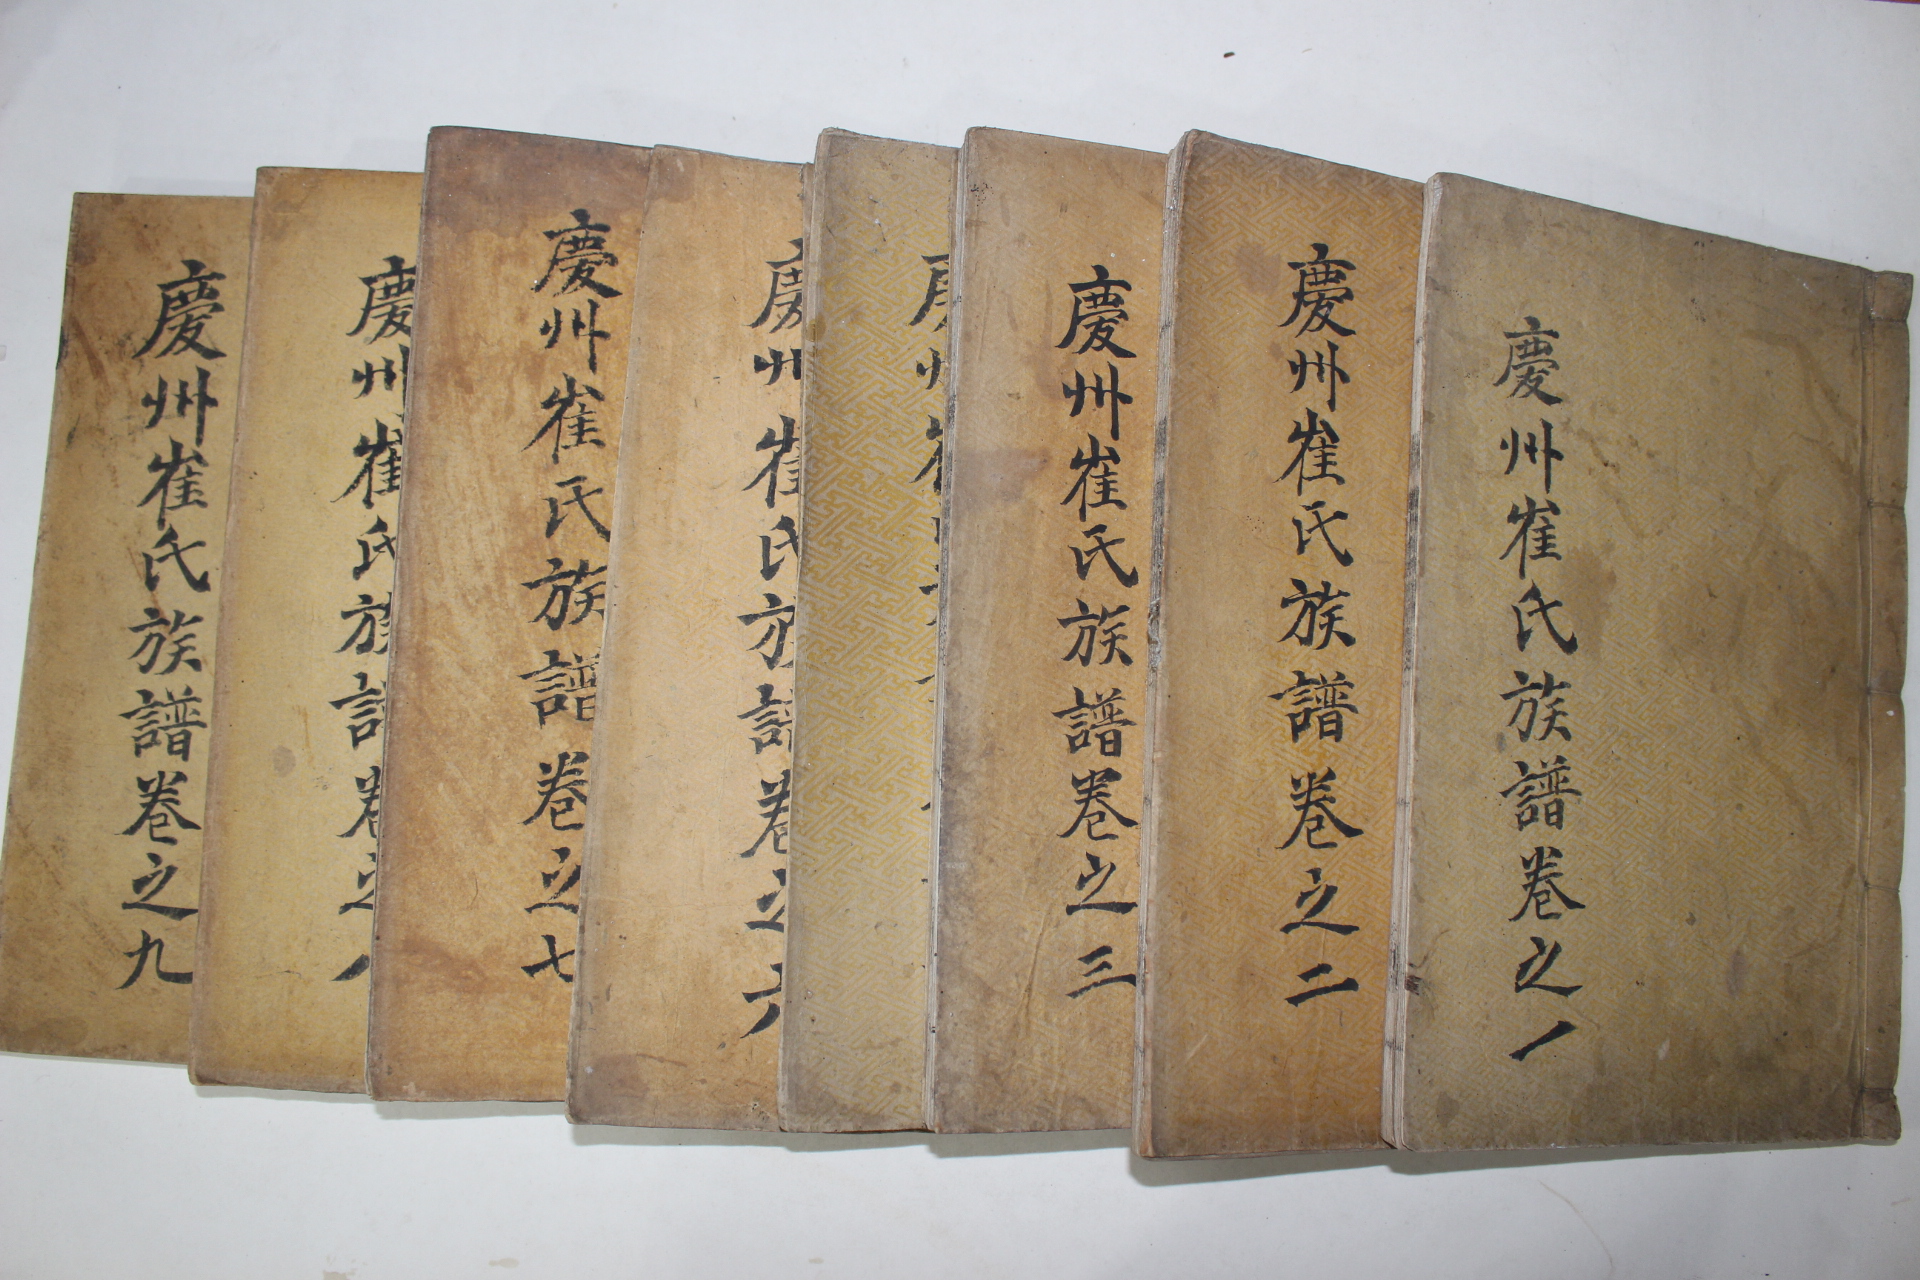 慶州崔氏族譜卷之一
慶州崔氏族譜卷之二
慶州崔氏族譜卷之三
慶州崔
慶州崔氏族譜卷之六
慶州崔氏族譜卷之七
慶州崔氏族譜卷之八
慶州崔氏族譜卷之九